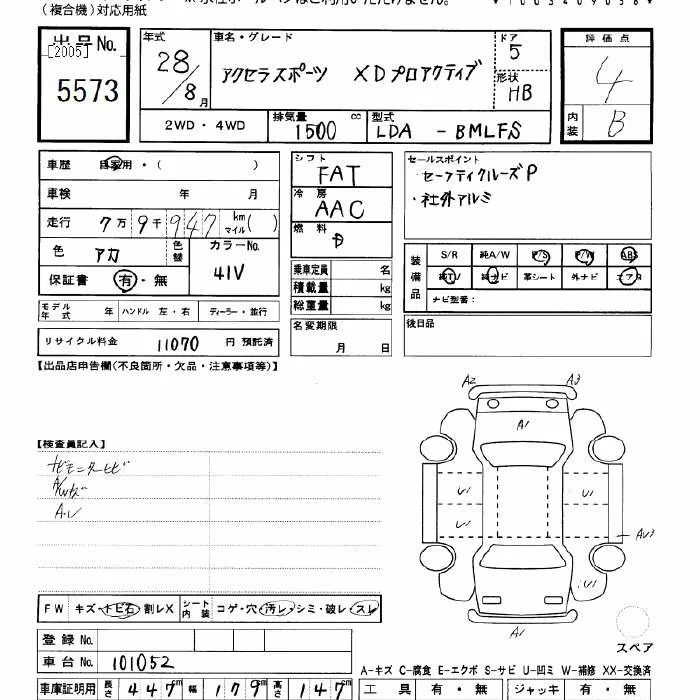 (複合機)対応用紙
出品No.
[2005]
5573
年式
28/8月
車名・グレード
アクセラスポーツ XDプロアクティブ
ドア
5
形状
HB
評価点
4
内装
B
2WD・4WD
排気量
1500 cc
型式
LDA - BMLFS
車歴 自家用・( )
車検 年 月
走行 7万9千947 km マイル( )
色 アカ 色替
カラーNo.
41V
保証書 有・無
シフト
FAT
冷房
AAC
燃料
D
乗車定員 名
積載量 kg
総重量 kg
名変期限
月 日
セールスポイント
・セーフティクルーズP
・社外アルミ
装備品
S/R 純A/W P/S P/W ABS
純TV 純ナビ 革シート 外ナビ エアB
ナビ型番:
後日品
モデル年式 年 ハンドル 左・右 ディーラー・並行
リサイクル料金 11070 円 預託済
【出品店申告欄(不良箇所・欠品・注意事項等)】
【検査員記入】
ナビモニターヒビ
A/Wキズ
A・U
A2 A3
A1
U U
U U
AU3
U
A1
スペア
FW キズ・トビ石・割レX シート内装 コゲ・穴・汚レ・シミ・破レ・スレ
登録No.
車台No. 101052
車庫証明用 長さ 447cm 幅 179cm 高さ 147cm
A-キズ C-腐食 E-エクボ S-サビ U-凹ミ W-補修 XX-交換済
工具 有・無 ジャッキ 有・無